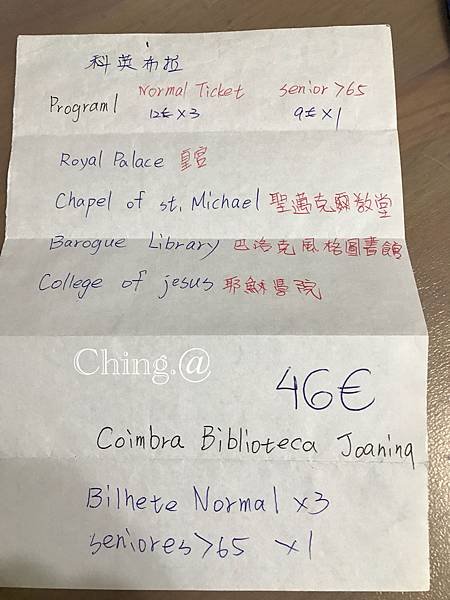 科英布拉
Normal Ticket senior >65
Program1 12€ x3 9€ x1
Royal Palace 皇宮
Chapel of st. Michael 聖邁克爾教堂
Baroque Library 巴洛克風格圖書館
College of jesus 耶穌學院
Ching.@
46€
Coimbra Biblioteca Joanina
Bilhete Normal x3
seniores>65 x1